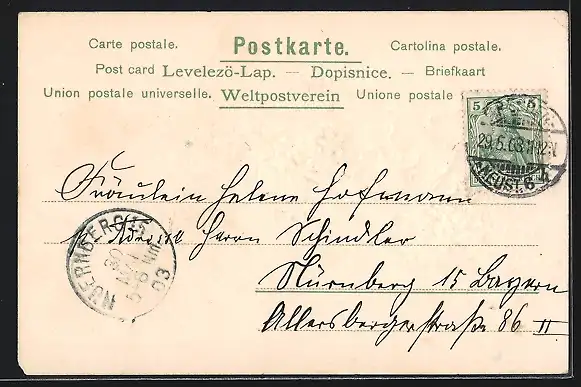 Carte postale. Postkarte. Cartolina postale.
Post card Levelezö-Lap. — Dopisnice. — Briefkaart
Union postale universelle. Weltpostverein Unione postale
5 5
29.5.03.
NEUST. 6
Fräulein Helene Hofmann
Adresse Herrn Schindler
Nürnberg 15 Bayern
Allersbergerstraße 86 II
NUERNBERG
30
5-6 Nm
03